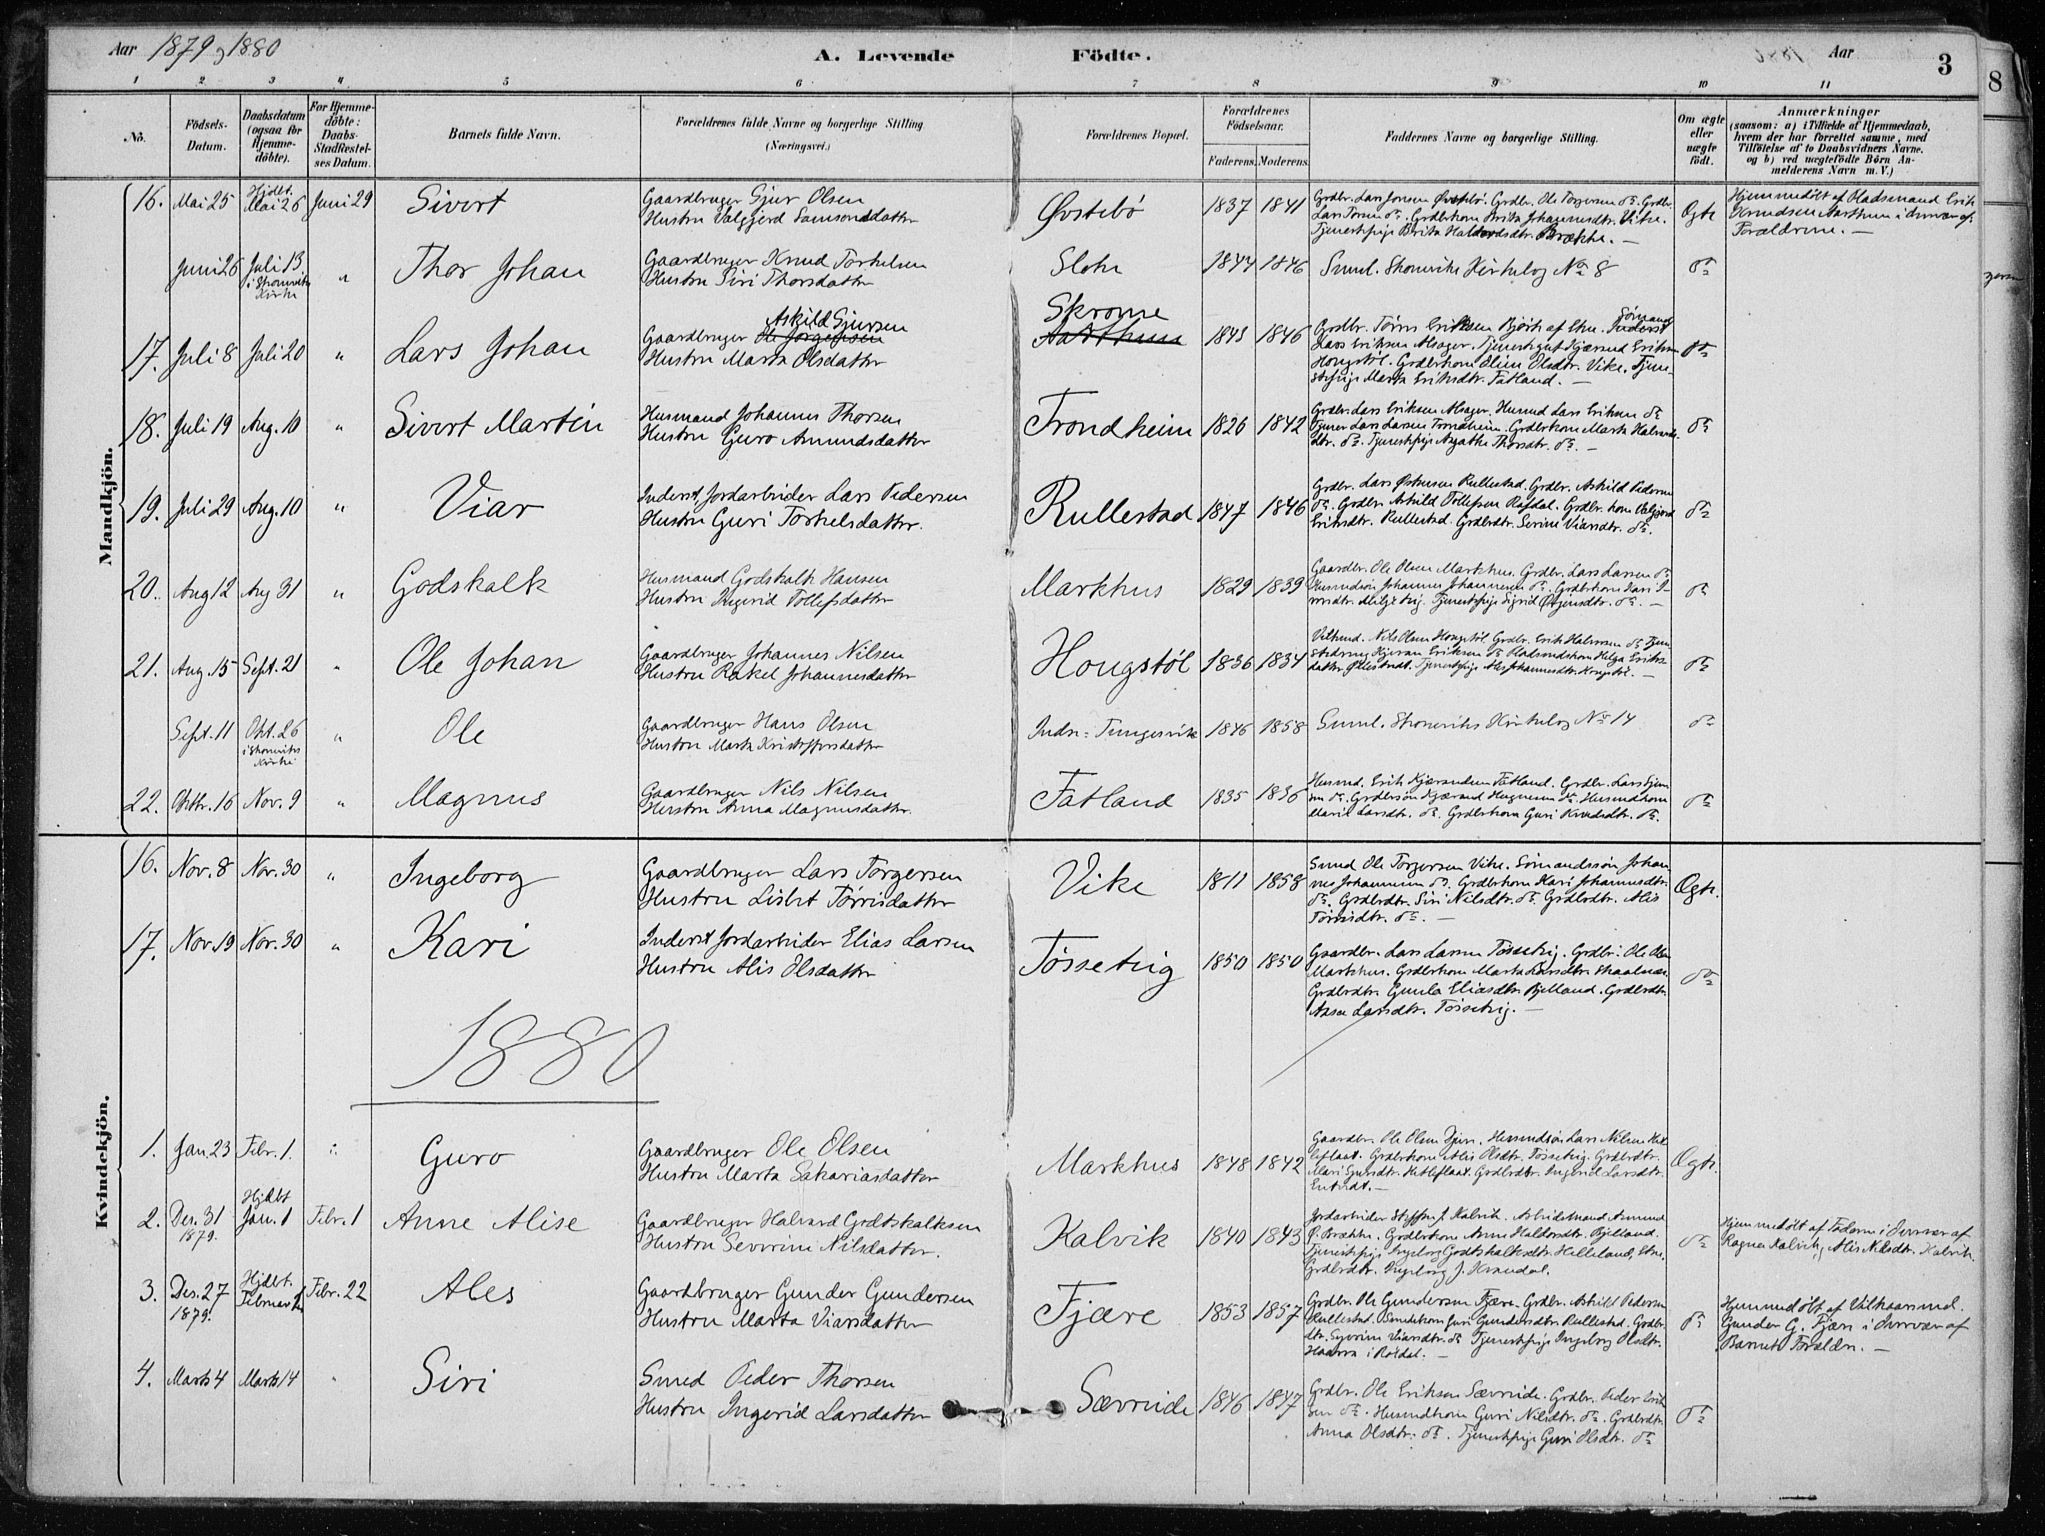 Aar 1879 og 1880
A. Levende Födte.
Aar
3
8
1 2 3 4 5 6 7 8 9 10 11
No.
Födsels-Datum.
Daabsdatum (ogsaa for Hjemme-döbte).
For Hjemme-döbte: Daabs-Stadfestel-ses Datum.
Barnets fulde Navn.
Forældrenes fulde Navne og borgerlige Stilling
(Næringsvei.)
Forældrenes Bopæl.
Forældrenes Födselsaar.
Faderens. Moderens.
Faddernes Navne og borgerlige Stilling.
Om ægte eller uægte födt.
Anmærkninger
(saasom: a) i Tilfælde af Hjemmedaab,
hvem der har forrettet samme, med
Tilföielse af to Daabsvidners Navne.
og b) ved uægtefödte Börn An-
melderens Navn m. V.)
Mandkjön.
16. Mai 25 Hjdbt. Mai 26 Juni 29 Sivert
Gaardbruger Gjur Olsen
Hustru Valgjerd Samsonsdatter
Øvstebö 1837 1841
Grdbr. Lars Jonsen Øvstebö. Grdbr. Ole Torgersen do. Grdbr.
Lars Tørrisen do. Grdbrkone Brita Johannesdtr. Vike.
Tjenestpige Brita Haldorsdtr. Brække. —
Ægte
Hjemmedøbt af Pladsmand Erik
Knudsen Aarthun i Nærvær af
Forældrene. —
Juni 26 Juli 13 i Skoneviks Kirke " Thor Johan
Gaardbruger Knud Torkelsen
Hustru Siri Thorsdatter
Sloke 1844 1846 Smnl. Skonevike Kirkebog No 8 do
17. Juli 8 Juli 20 " Lars Johan
Askild Gjursen
Gaardbruger Ole Jørgensen
Hustru Marta Olsdatter
Skrome
Aarthun 1843 1846
Grdbr. Tørris Eriksen Bjørk af Etne. Sømand Inderst
Lars Eriksen Alsager. Tjenestgut Kjærand Eriksen
Hougstøl. Grdbrkone Olin Olsdtr. Vike. Tjene-
stepige Marta Eriksdtr. Fatland. —
do
18. Juli 19 Aug. 10 " Sivert Martin
Husmand Johannes Thorsen
Hustru Guro Amundsdatter
Trondheim 1826 1842
Grdbr. Lars Eriksen Alsager. Husmd Lars Eriksen do
Tjener Lars Larsen Trondheim. Grdbrkone Marta Halvards-
dtr. do. Tjenestpige Agathe Thorsdtr. do. —
do
19. Juli 29 Aug. 10 " Viar
Inderst, Jordarbeider Lars Pedersen
Hustru Guri Torkelsdatter.
Rullestad 1847 1846
Grdbr. Lars Østensen Rullestad. Grdbr. Askild Pedersen
do. Grdbr. Askild Tollefsen Rafdal. Grdbr. kone Valgjerd
Eriksdtr. Rullestad. Grdbrdtr. Serine Viarsdtr. do.
do
20. Aug 12 Aug 31 " Godskalk
Husmand Godskalk Hansen
Hustru Ingerid Tollefsdatter
Markhus 1829 1839
Gaardbr. Ole Olsen Markhus. Grdbr. Lars Larsen do
Husmdsøn Johannes Johannesen do. Grdbrkone Kari
Miljeteig. Tjenestpige Sigrid do. —
do
21. Aug. 15 Sept. 21 " Ole Johan
Gaardbruger Johannes Nilsen
Hustru Rakel Johannesdatter
Hougstøl 1836 1834
Vilkmd. Nils Olsen Hougstøl. Grdbr. Erik Halvorsen do Tjene-
Kjæran Eriksen do Pladsmdskone Helga Eriks-
datter Tjenestpige Ales Johannesdtr. Hougstøl. —
do
Sept. 11 Okt. 26 i Skoneviks Kirke " Ole
Gaardbruger Hans Olsen
Hustru Marta Kristoffersdatter
Indre-Tungesvik 1846 1858 Smnl. Skoneviks Kirkebog No 14 do
22. Oktbr. 16 Nov. 9 " Magnus
Gaardbruger Nils Nilsen
Hustru Anna Magnusdatter.
Fatland 1835 1836
Husmd. Erik Kjærandsen Fatland. Grdbr. Lars Gjur-
sen do. Grdbrsøn Kjærand Magnusen do. Husmdkone
Marit Larsdtr. do. Grdbrkone Guri Knudsdtr. do.
do
Kvindekjön.
16. Nov. 8 Nov. 30 " Ingeborg
Gaardbruger Lars Torgersen
Hustru Lisbet Tørrisdatter
Vike 1811 1858
Smed Ole Torgersen Vike. Sømandssøn Johan-
nes Johannesen do. Grdbrkone Kari Johannesdtr.
do. Grdbrdtr. Siri Nilsdtr. do. Grdbrdtr. Alis
Tørrisdtr. do. —
Ægte.
17. Nov. 19 Nov. 30 " Kari
Inderst Jordarbeider Elias Larsen
Hustru Alis Olsdatter
Tøsseteig 1850 1850
Gaardbr. Lars Larsen Tøsseteig. Grdbr. Ole Olsen
Markhus. Grdbrkone Marta Larsdtr. Skaalnæs.
Grdbrdtr. Gunla Eliasdtr. Bjelland. Grdbrdtr.
Aase Larsdtr. Tøsseteig. —
do
1880
1. Jan. 23 Febr. 1. " Guro
Gaardbruger Ole Olsen
Hustru Marta Sakariasdatter
Markhus 1848 1842
Gaardbr. Ole Olsen Husmdsøn Lars Nilsen Ket-
leflaat. Grdbrkone Alis Olsdtr. Tøsseteig. Grdbrdtr.
Mari Gjursdtr. Ketleflaat. Grdbrdtr. Ingerid Larsdtr.
—
Ægte.
2. Des. 31 1879. Hjdbt Jan. 1 Febr. 1 Anne Alise
Gaardbruger Halvard Godtskalksen
Hustru Severine Nilsdatter.
Kalvik 1840 1843
Jordarbeider Steffen J. Kalvik. Arbeidsmand Amund
Brække. Grdbrkone Anne Haldorsdtr. Bjelland.
Tjenestpige Ingeborg Godtskalksdtr. Helleland, Etne.
Grdbrdtr. Ingeborg J. Kvandal.
do
Hjemmedøbt af Faderen i Nærvær af
Ragna Kalvik, Alis Nilsdtr. Kalvik.
3. Des. 27 1879. Hjdbt. Februar 1 Febr. 22 Ales
Gaardbruger Gunder Gundersen
Hustru Marta Viarsdatter
Fjære 1853 1857
Grdbr. Ole Gundersen Fjære. Grdbr. Askild Pedersen
Rullestad. Smedkone Guri Gundersdtr. Rullestad. Grdbr-
dtr. Severine Viarsdtr. do Tjenestpige Ingeborg Olsdtr.
i Röldal. —
do
Hjemmedøbt af Vilkaarsmd.
Gunder G. Fjære i Nærvær af
Barnets Forældre. —
4. Marts 4 Marts 14 " Siri
Smed Peder Thorsen
Hustru Ingerid Larsdatter
Sævreide 1846 1847
Grdbr. Ole Eriksen Sævreide. Grdbr. Peder Erik-
sen do. Husmdkone Guri Nilsdtr. do. Grdbrdtr.
Anna Olsdtr. do. Tjenestpige Guri Olsdtr. do
do